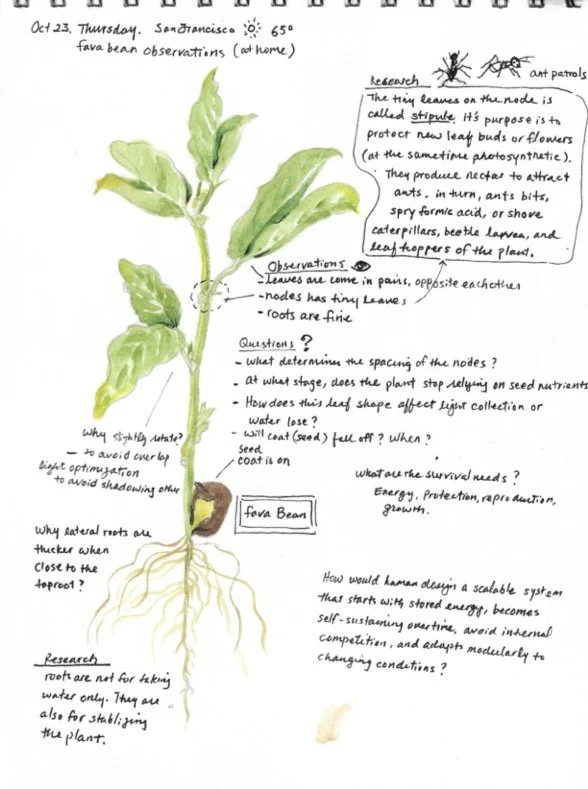 Oct 23. Thursday. San Francisco 65°
fava bean observations (at home)
ant patrols
Research
The tiny leaves on the node is
called stipule. it's purpose is to
protect new leaf buds or flowers
(at the sametime photosynthetic).
They produce nectar to attract
ants. in turn, ants bits,
spry formic acid, or shove
caterpillars, beetle larvea, and
leaf hoppers of the plant.
Observations
- leaves are come in pairs, opposite eachother
- nodes has tiny leaves
- roots are fine
Questions ?
- what determines the spacing of the nodes ?
- At what stage, does the plant stop relying on seed nutrients
- How does this leaf shape affect light collection or
water lose ?
- will coat (seed) fall off ? When ?
seed
coat is on
why slightly rotate?
- to avoid overlap
light optimization
to avoid shadowing other
what are the survival needs ?
Energy, Protection, reproduction,
growth.
fava Bean
Why lateral roots are
thicker when
close to the
taproot ?
How would human design a scalable system
that starts with stored energy, becomes
self-sustaining overtime, avoid internal
competition, and adapts modularly to
changing conditions ?
Research
roots are not for taking
water only. They are
also for stablizing
the plant.